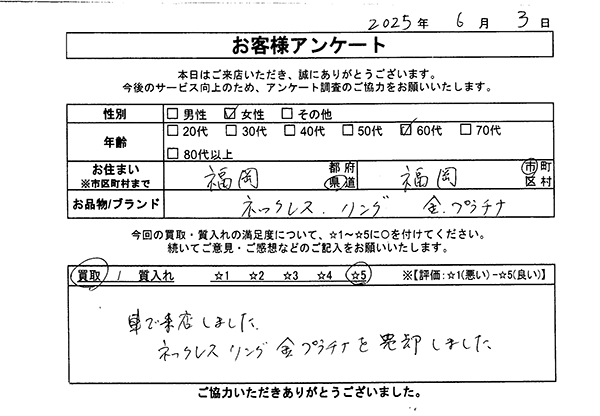 2025年 6月 3日
お客様アンケート
本日はご来店いただき、誠にありがとうございます。
今後のサービス向上のため、アンケート調査のご協力をお願いいたします。
性別 □ 男性 ☑ 女性 □ その他
年齢 □ 20代 □ 30代 □ 40代 □ 50代 ☑ 60代 □ 70代
□ 80代以上
お住まい ※市区町村まで 福岡 都府県道 福岡 市町区村
お品物/ブランド ネックレス.リング 金.プラチナ
今回の買取・質入れの満足度について、☆1～☆5に○を付けてください。
続いてご意見・ご感想などのご記入をお願いいたします。
買取 / 質入れ ☆1 ☆2 ☆3 ☆4 ☆5 ※【評価:☆1(悪い)-☆5(良い)】
車で来店しました.
ネックレス リング 金プラチナを売却しました
ご協力いただきありがとうございました。